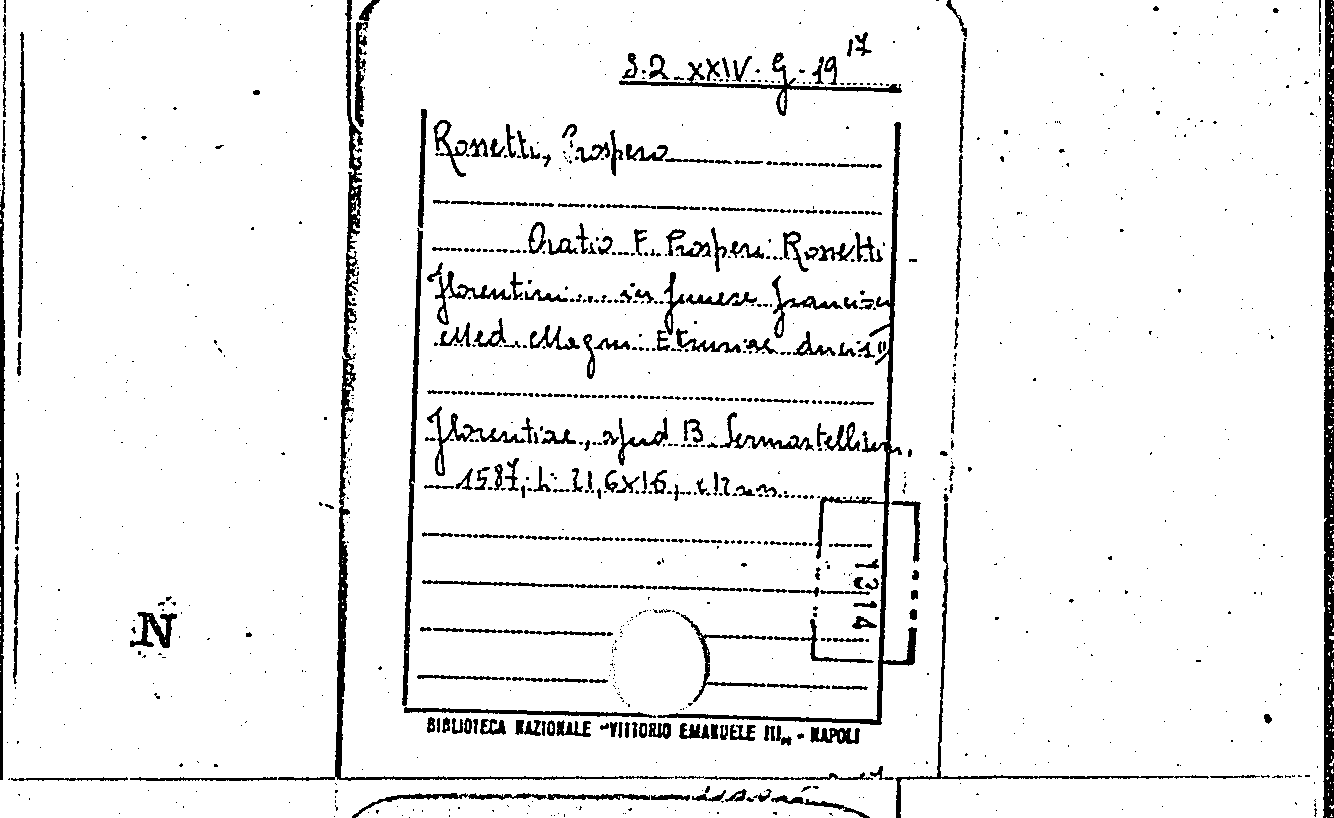 S.Q. XXIV. G. 19 17
Rosetti, Prospero
Oratio F. Prosperi Rosetti
Florentini... in funere Francisci
Med. Magni Etruriae ducis II
Florentiae, apud B. Sermartellium,
1587, 21,6x16,
1314
N
BIBLIOTECA NAZIONALE "VITTORIO EMANUELE III„ - NAPOLI